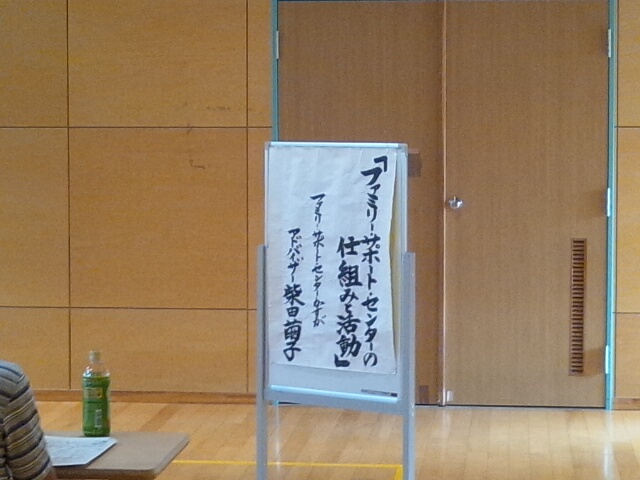 「ファミリー・サポート・センターの
仕組みと活動」
ファミリー・サポート・センターかすが
アドバイザー 柴田繭子